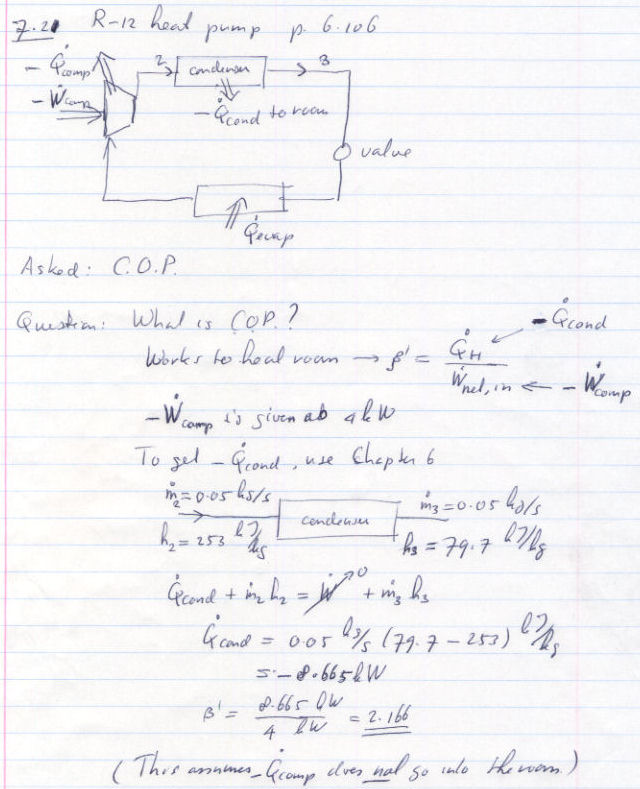 7.21 R-12 heat pump p. 6.106
- Q̇comp
2
condenser
3
- Ẇcomp
- Q̇cond to room
value
Q̇evap
Asked: C.O.P.
Question: What is COP.?
- Q̇cond
Works to heat room → β' = Q̇H / Ẇnet, in ← - Ẇcomp
- Ẇcomp is given ab 4 kW
To get - Q̇cond, use Chapter 6
ṁ2 = 0.05 kg/s
condenser
ṁ3 = 0.05 kg/s
h2 = 253 kJ/kg
h3 = 79.7 kJ/kg
Q̇cond + ṁ2 h2 = Ẇ 0 + ṁ3 h3
Q̇cond = 0.05 kg/s (79.7 - 253) kJ/kg
= - 8.665 kW
β' = 8.665 kW / 4 kW = 2.166
(This assumes - Q̇comp does not go into the room.)